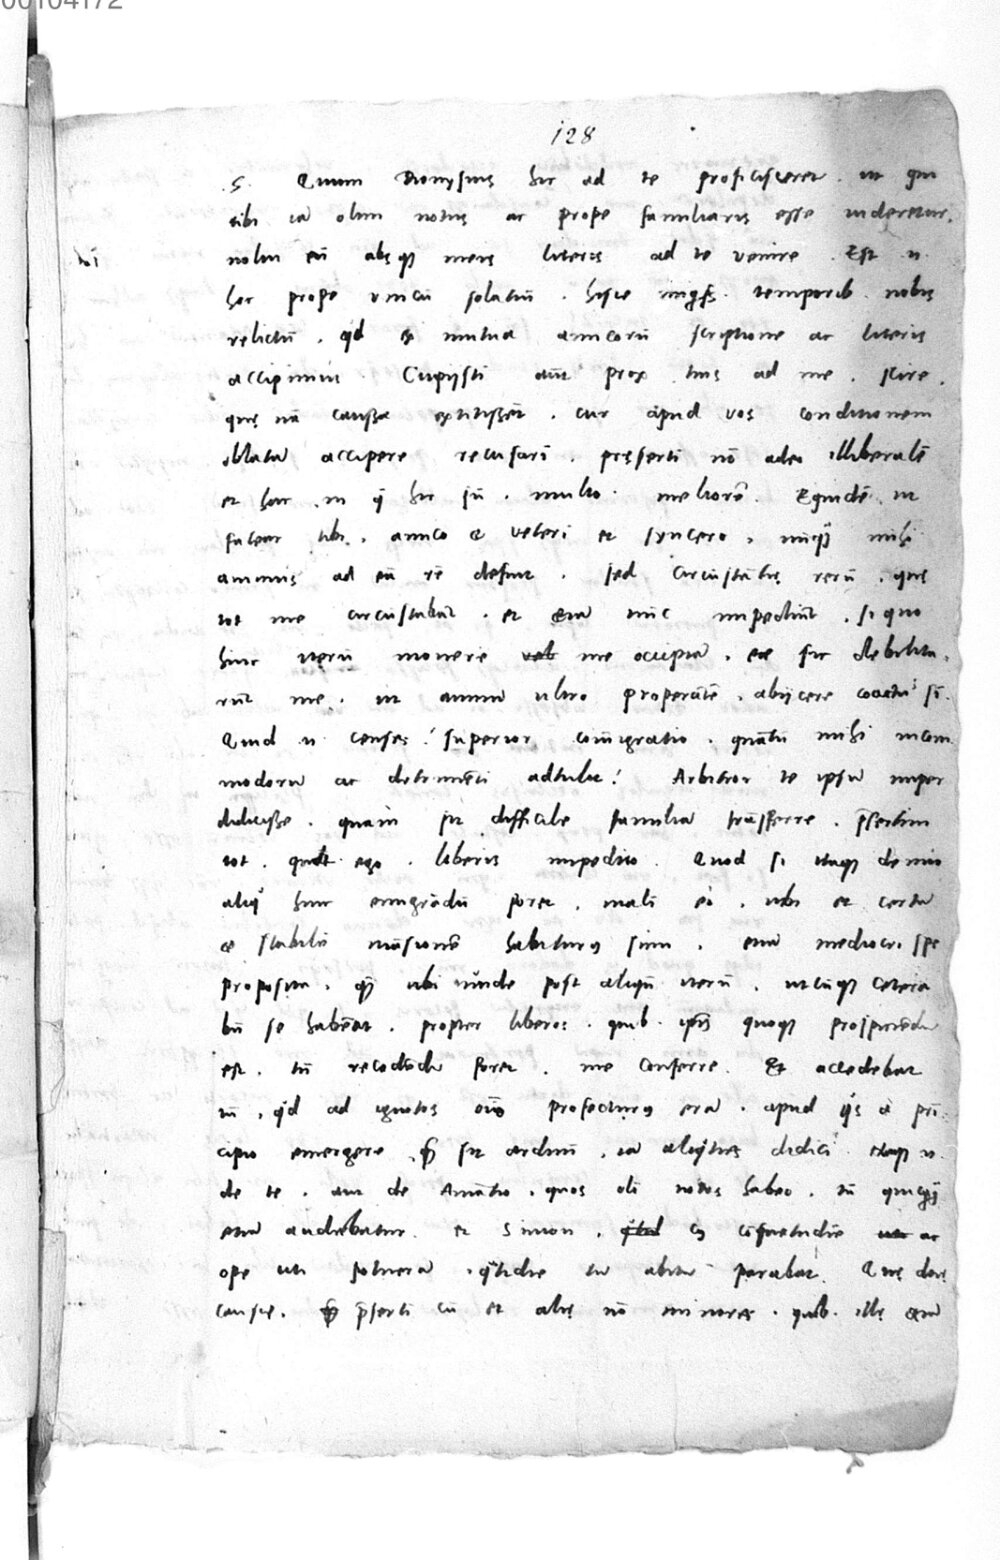 00104172
128
S. Quum Dionysius hic ad te proficisceret. ut qui
tibi iā olim notus ac prope familiaris esse uideretur,
nolui eū absq̃ meis literis ad te venire. Est n.
hoc prope vnicū solatiū. hisce temporib. nobis
relictū. qd ex mutua amicorū scriptione ac literis
accipimus. Cupijsti aūt prox tuis ad me. scire.
quę nā caussæ extitissēt. cur apud vos conditionem
oblatā accipere recusari. pręserti nō adeo illiberalē
et hac in q̄ hic sū. multo meliorē. Equidē ut
fatear tibi. amico & veteri et syncero. nunq̃ mihi
animus ad eā rē defuit. sed circūstātię rerū. quę
tot me circūstabāt. et etiā nūc impediūt. si quo
hinc iterū mouere me occupiā. eæ sic debilita-
rūt me. ut animū ultro properātē. abijcere coactus sī.
Quid n. censes? superior comigratio. quātū mihi incom
modorū ac detrimēti adtulit? Arbitror te ipsū nuper
didicisse. quam sit difficile familiā trāsferre. p̄sertim
tot. quot ego. liberis impedito. Quod si itaq̃ denuo
aliq̊ hinc emigrādū foret. mali eo. ubi et certā
& stabilē māsionē habiturus sim. etiā mediocri spe
proposita. q̃ ubi inde post aliqū iterū. utcūq̃ cetera
bn̄ se habeāt. propter liberos. quib. quoq̃ prospiciēdū
est. tū recedēdū foret. me conferre. Et accedebat
tū. qd ad ignotos oīno profecturus erā. apud q̊s a pri
cipio emergere q̃ sit arduū. iā aliq̊ties didici. Neq̃ n.
de te. aut de Amātio. quos oli notos habeo. tū quicq̃
etiā audiebatur. et Simon. cꝰ cōsuetudīe ac
ope uti potuerā. q̊tidie tū abitū parabat. Quę dū
causę. p̄serti cū et alię nō minores. quib. illę etiā